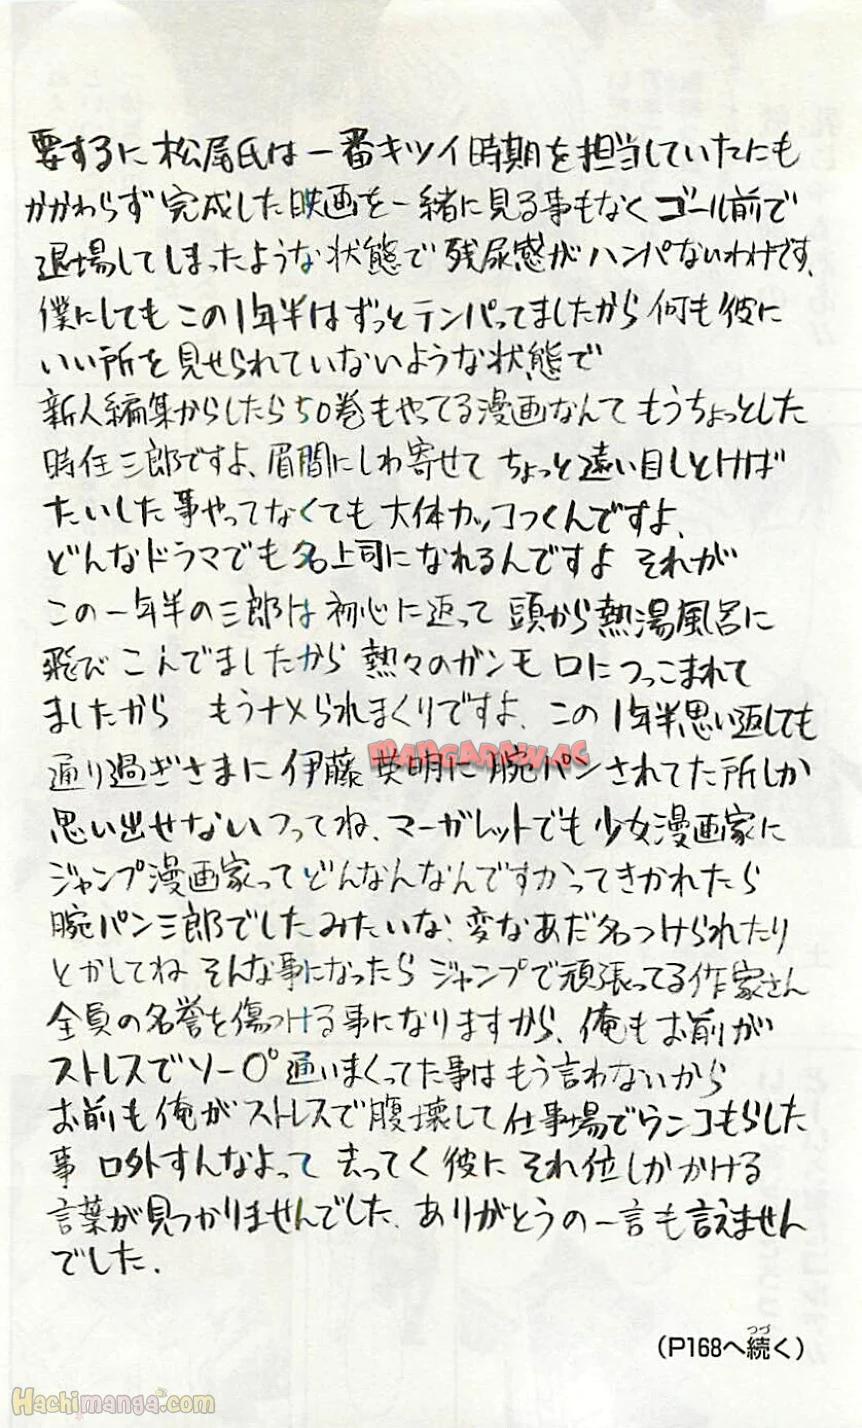 要するに松尾氏は一番キツイ時期を担当していたにも
かかわらず完成した映画を一緒に見る事もなくゴール前で
退場してしまったような状態で残尿感がハンパないわけです、
僕にしてもこの1年半はずっとテンパってましたから何も彼に
いい所を見せられていないような状態で
新人編集からしたら50巻もやってる漫画なんてもうちょっとした
時任三郎ですよ、眉間にしわ寄せてちょっと遠い目しとけば
たいした事やってなくても大体カッコつくんですよ、
どんなドラマでも名上司になれるんですよ それが
この一年半の三郎は初心に返って頭から熱湯風呂に
飛びこんでましたから熱々のガンモ口につっこまれて
ましたから もうナメられまくりですよ、この1年半思い返しても
通り過ぎさまに伊藤英明に腕パンされてた所しか
思い出せないっつってね、マーガレットでも少女漫画家に
ジャンプ漫画家ってどんなんなんですかってきかれたら
腕パン三郎でしたみたいな、変なあだ名つけられたり
とかしてね そんな事になったらジャンプで頑張ってる作家さん
全員の名誉を傷つける事になりますから、俺もお前が
ストレスでソー〇プ通いまくってた事はもう言わないから
お前も俺がストレスで腹壊して仕事場でウンコもらした
事 口外すんなよって 去ってく彼に それ位しかかける
言葉が見つかりませんでした、ありがとうの一言も言えません
でした.
(P168へ続く)
つづ
MANGARAW.AC
Hachimanga.com